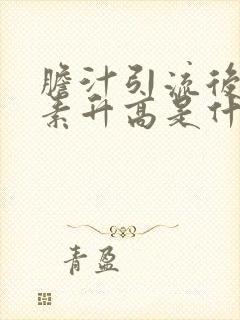 膽汁引流後
素升高是什
青盈